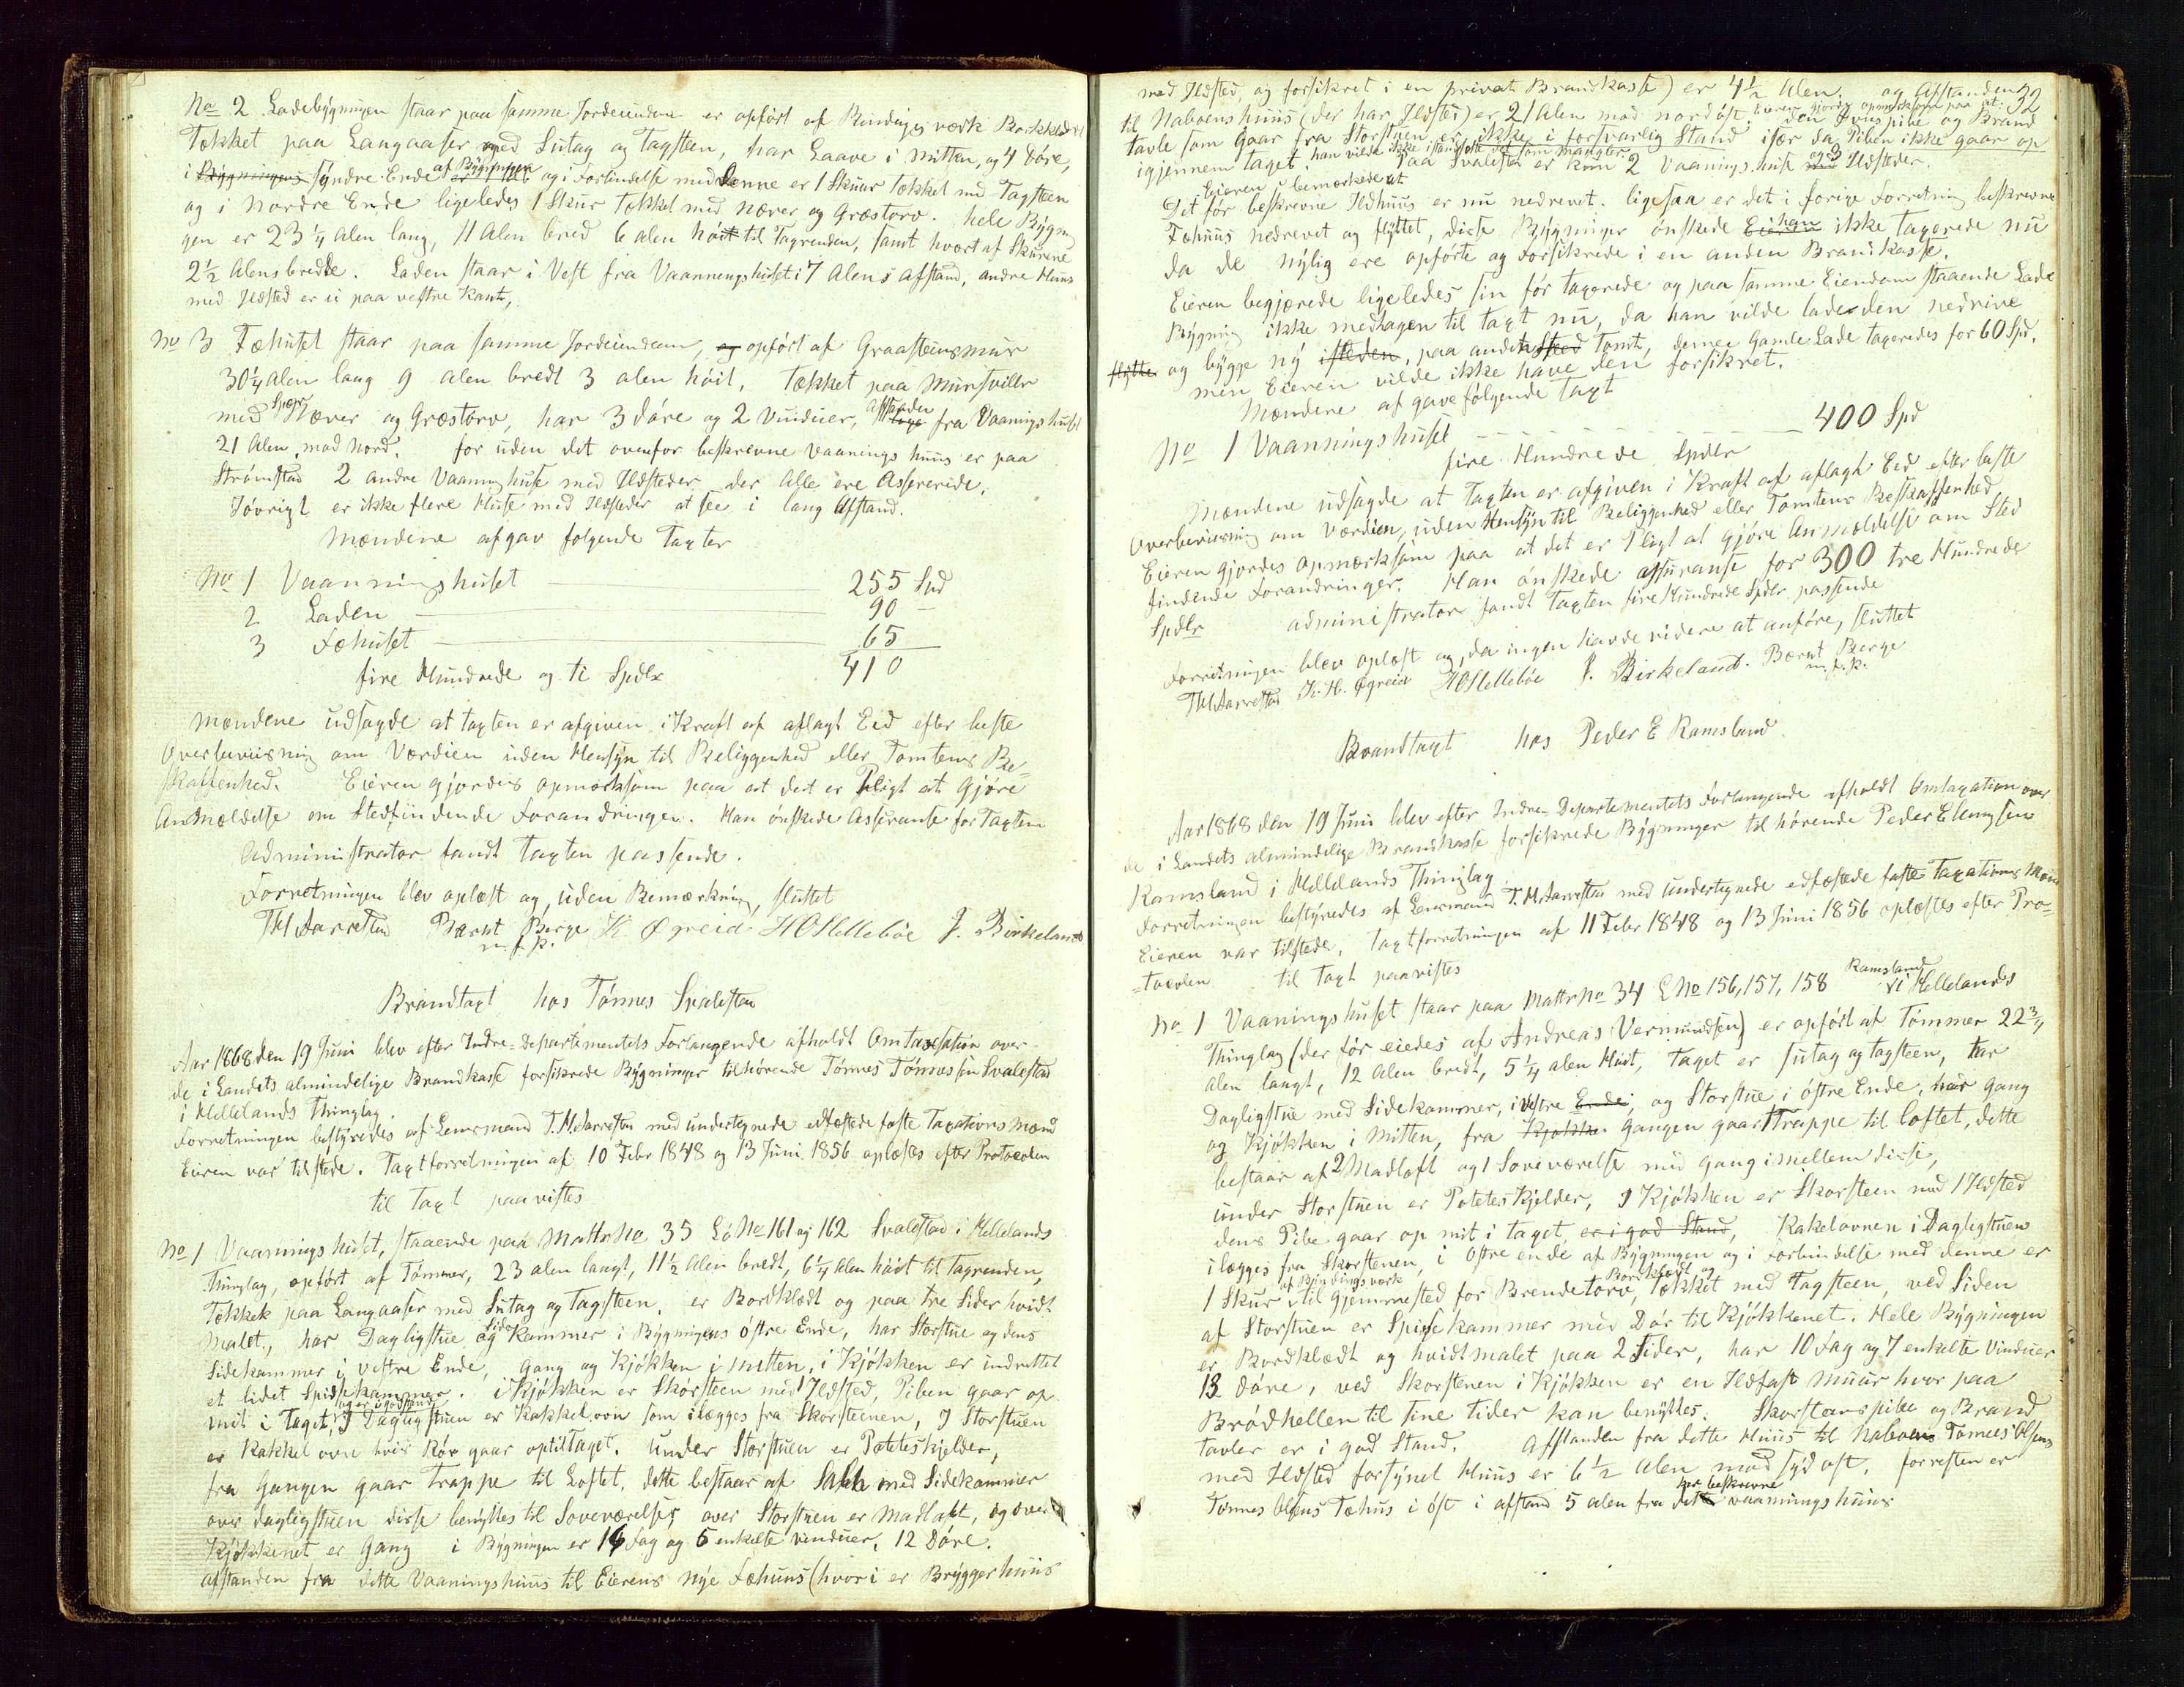 No 2 Ladebygningen staar paa samme Jordeiendom er opført af Bindingsværk Bordklædt
Tækket paa Langaaser med Sutag og Tagsteen, har Laave i mitten, og 4 Døre,
i Bygningens syndre Ende af Bygningen og i Forbindelse med denne er 1 Skuur tækket med Tagsteen
og i Nordre Ende ligeledes 1 Skur tækket med Næver og Græstorv. hele Bygnin
gen er 23 1/4 Alen lang, 11 Alen bred 6 alen høit til Tagrenden, samt hvort af Skurene
2 1/2 Alens bredde. Laden staar i Vest fra Vaanningshuset i 7 Alens afstand, andre Huus
med Ildsted er ei paa vestre Kant,
No 3 Fæhuset staar paa samme Jordeiendom, og opført af Graasteinsmuur
30 1/4 Alen lang 9 alen bredt 3 alen høit, Tækket paa Mursviller
med Spær Næver og Græstorv, har 3 Døre og 2 Vinduer, Afstanden fra Vaaningshuset
21 Alen mod Nord. for uden det ovenfor beskrevne Vaanings huus er paa
Strømstad 2 andre Vaaninghuse med Ildsteder der Alle ere Asserede,
Jøvrigt er ikke flere Huse med Ildsteder at see i lang Afstand.
Mændene afgav følgende Taxter
No 1 Vaanningshuset 255 Spd
2 Laden 90 –
3 Fæhuset 65
fire Hundrede og ti Spdlr 410
Mændene udsagde at taxten er afgiven i Kraft af aflagt Eed efter beste
Overbeviisning om Værdien uden Hensyn til Beliggenhed eller Tomtens Be-
skaffenhed. Eieren gjordes opmærksom paa at det er Pligt at gjøre
Anmældelse om Stedfindende Forandringer. Han ønskede Asserance for Taxten
Administrator fandt Taxten passende.
Forretningen blev oplæst og, uden Bemærkning, sluttet
TH Aarrestad Bærnt Berge K. Øgreid HO Hellebøe J. Birkeland
m.f.p.
Brandtaxt hos Tønnes Svalestad
Aar 1868 den 19 Juni blev efter Indre-Departementets Forlangende afholdt Omtaxation over
de i Landets almindelige Brandkasse forsikrede Bygninger tilhørende Tønnes Tønnessen Svalestad
i Hellelands Thinglag.
Forretningen bestyredes af Lensmand T. H. Aarrestad med undertegnede edfæstede faste Taxationsmænd
Eieren var tilstede. Taxtforretningen af 10 Febr 1848 og 13 Juni 1856 oplæstes efter Protocolen
til Taxt paavistes
No 1 Vaanings huset, staaende paa Mattr No 35 Lø No 161 og 162 Svalestad i Hellelands
Thinglag, opført af Tømmer, 23 alen langt, 11 1/2 Alen bredt, 6 1/4 Alen høit til Tagrenden,
Tækket paa Langaaser med Sutag og Tagsteen, er Bordklædt og paa tre Sider hvidt
Malet, har Dagligstue og Side Kammer i Bygningens østre Ende, har Storstue og dens
Sidekammer i vestre Ende, gang og Kjøkken i mitten, i Kjøkken er indrettet
et lidet Spidsekammer. i Kjøkken er Skorsteen med 1 Ildsted, Piben gaar op
mit i Taget, og er i god stand I Dagligstuen er Kakkelovn som ilægges fra Skorsteenen, I Storstuen
er Kakkel ovn hvis Rør gaar op til Taget. Under Storstuen er Poteteskjelder,
fra Gangen gaar Trappe til Loftet, dette bestaar af Sahl med Sidekammer
over dagligstuen disse benyttes til Soveværelser, over Storstuen er Madloft, og over
Kjøkkenet er Gang i Bygningen er 16 Fag og 5 enkelte vinduer, 12 Døre.
afstanden fra dette Vaaningshuus til Eierens nye Fæhuus (hvori er Bryggerhuus
32
med Ildsted, og forsikret i en privat Brandkasse) er 4 1/2 Alen. og Afstanden
til Naboens huus (der har Ildsted) er 21 Alen mod nordøst. Eieren gjordes opmærksom paa at den Ovnspibe og Brand
tavle som Gaar fra Storstuen er ikke i forsvarlig Stand især da Piben ikke gaar op
igjennem taget. han vilde ikke istandsætte det som mangler Paa Svalestad er kun 2 Vaanings huse og 3 Ildsteder.
Eieren bemærkede at
Det før beskrevne Ildhuus er nu nedrevet. ligesaa er det i forige Forretning beskrevne
Fæhuus nedrevet og flyttet, disse Bygninger ønskede Eieren han ikke taxerede nu
da de nylig ere opførte og forsikrede i en anden Brandkasse.
Eieren begjærede ligeledes sin før taxerede og paa samme Eiendom staaende Lade
Bygning ikke medtagen til taxt nu, da han vilde lade den nedrive
flytte og bygge ny isteden, paa anden Sted Tomt, denne Gamle Lade taxeredes for 60 Spd.
men Eieren vilde ikke have den forsikret.
Mændene af gave følgende taxt
No 1 Vaanningshuset 400 Spd
fire Hundrede Spdlr
Mændene udsagde at Taxten er afgiven i Kraft af aflagt Eed efter beste
Overbeviisning om Værdien, uden Hensyn til Beliggenhed eller Tomtens Beskaffenhed
Eieren gjordes opmærksom paa at det er Pligt at gjøre Anmældelse om Sted
findende Forandringer. Han ønskede assurance for 300 tre Hundrede
Spdlr administrator fandt Taxten fire Hundrede Spdlr passende
Forretningen blev oplæst og, da ingen havde videre at anføre, sluttet
TH Aarrestad K. H. Øgreid HO Hellebøe J. Birkeland. Bærnt Berge
m.f.p.
Brandtaxt hos Peder E Ramsland.
Aar 1868 den 19 Juni blev efter Indre-Departementets Forlangende afholdt Omtaxation over
de i Landets almindelige Brandkasse forsikrede Bygninger til hørende Peder Elingsen
Ramsland i Hellelands Thinglag.
Forretningen bestyredes af Lensmand T. H. Aarrestad med undertegnede edfæstede faste Taxations Mænd
Eieren var tilstede, Taxtforretningen af 11 Febr 1848 og 13 Juni 1856 oplæstes efter Pro-
tocolen til Taxt paavistes
No 1 Vaanings huset staar paa Mattr No 34 L No 156, 157, 158 Ramsland i Hellelands
Thinglag (der før eiedes af Andreas Vermundsen) er opført af Tømmer 22 3/4
alen langt, 12 Alen bredt, 5 1/4 alen Høit, Taget er sutag og tagsteen, har
Dagligstue med Sidekammer, i vestre Ende, og Storstue i østre Ende, har gang
og Kjøkken i mitten, fra Kjøkken Gangen gaar 1 Trappe til loftet, dette
bestaar af 2 Madloft og 1 Soveværelse med gang imellem disse,
under Storstuen er Potetes Kjelder, I Kjøkken er Skorsteen med 1 Ildsted
dens Pibe gaar op mit i taget, er i god Stand, Kakelovnen i Dagligstuen
ilægges fra Skorstenen, i Østre ende af Bygningen og i Forbindelse med denne er
1 Skur af Bindingsværk til gjemmested for Brendetorv, Bordklædt og tækket med Tagsteen, ved Siden
af Storstuen er Spisekammer med Dør til Kjøkkenet. Hele Bygningen
er Bordklædt og hvidtmalet paa 2 Sider, har 10 Fag og 7 enkelte Vinduer
13 Døre, ved Skorstenen i Kjøkken er en Ildfast muur hvor paa
Brødhellen til sine tider kan benyttes. Skorstenspibe og Brand
tavler er i god Stand. Afstanden fra dette Huus til Naboens Tønnes Olsens
med Ildsted forsynet Huus er 6 1/2 Alen mod sydost. forresten er
Tønnes Olsens Fæhus i øst i afstand 5 alen fra det her beskrevne vaannings huus